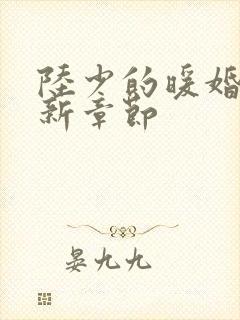 陸少的暖婚
新章節
晏九九